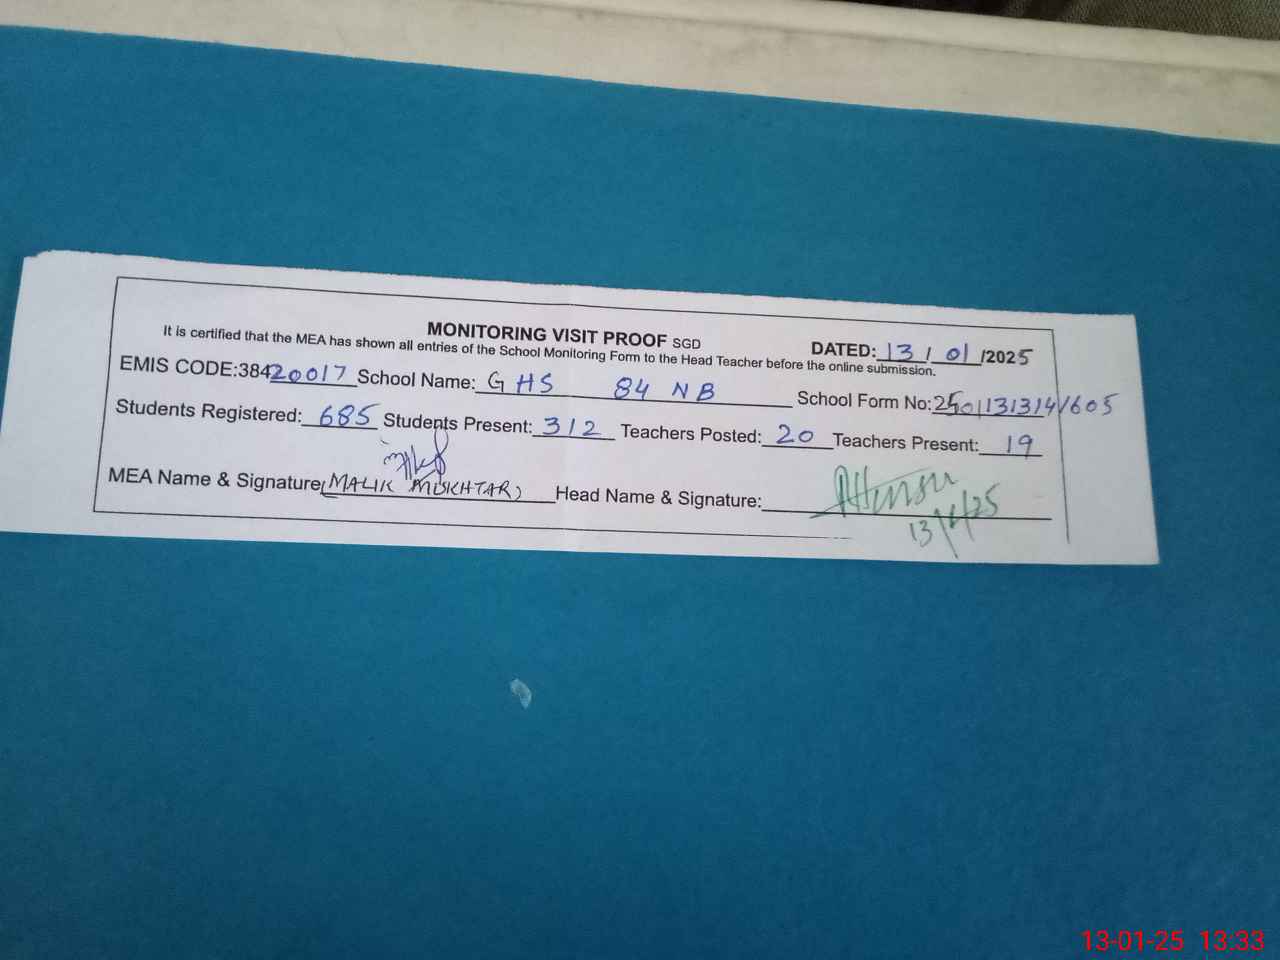 MONITORING VISIT PROOF SGD
DATED: 13 / 01 /2025
It is certified that the MEA has shown all entries of the School Monitoring Form to the Head Teacher before the online submission.
EMIS CODE:38420017 School Name: GHS 84 NB School Form No: 2501131314/605
Students Registered: 685 Students Present: 312 Teachers Posted: 20 Teachers Present: 19
MEA Name & Signature (MALIK MUKHTAR) Head Name & Signature:
13/1/25
13-01-25 13:33